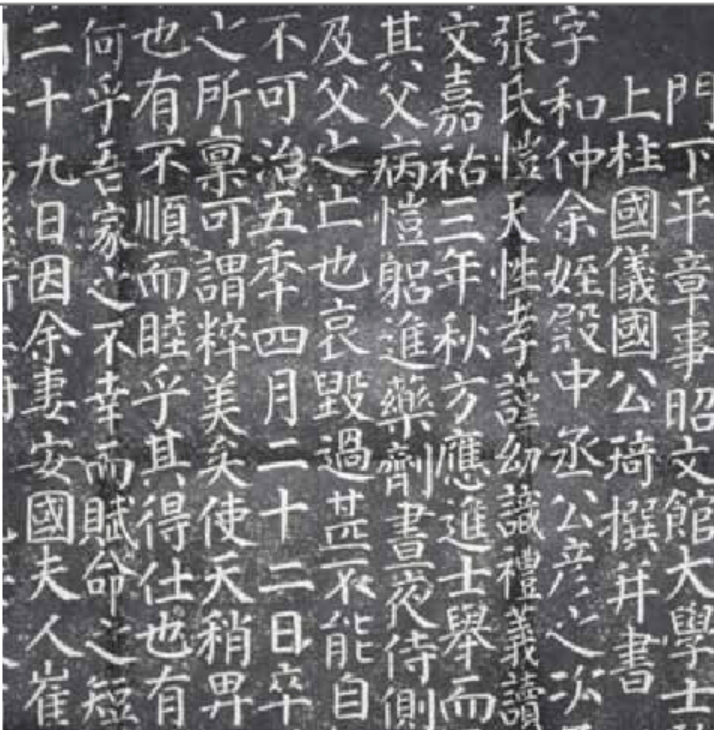 門下平章事昭文館大學士
上柱國儀國公琦撰并書
字和仲余姪殿中丞公彥之次
張氏愷天性孝謹幼識禮義讀
文嘉祐三年秋方應進士舉而
其父病愷躳進藥劑晝夜侍側
及父之亡也哀毀過甚不能自
不可治五秊四月二十二日卒
之所稟可謂粹美矣使天稍畀
也有不順而睦乎其得仕也有
何乎吾家之不幸而賦命之短
二十九日因余妻安國夫人崔